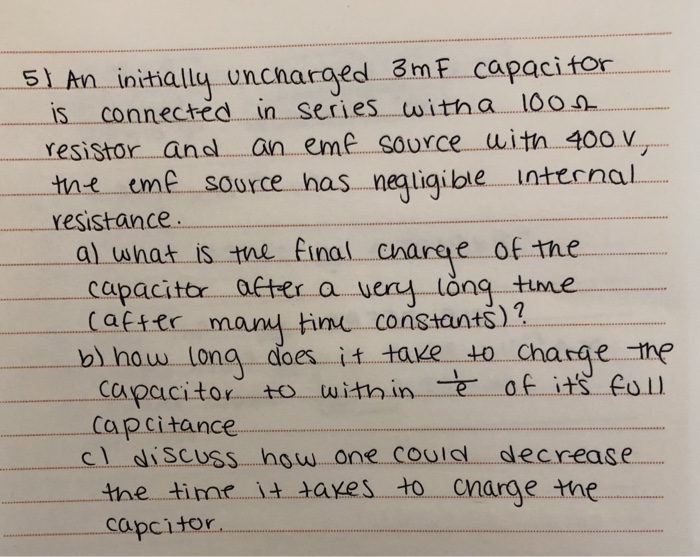 5) An initially uncharged 3mF capacitor
is connected in series with a 100Ω
resistor and an emf source with 400 V,
the emf source has negligible internal
resistance.
a) what is the final charge of the
capacitor after a very long time
(after many time constants)?
b) how long does it take to charge the
capacitor to within 1/e of it's full
capcitance
c) discuss how one could decrease
the time it takes to charge the
capcitor.